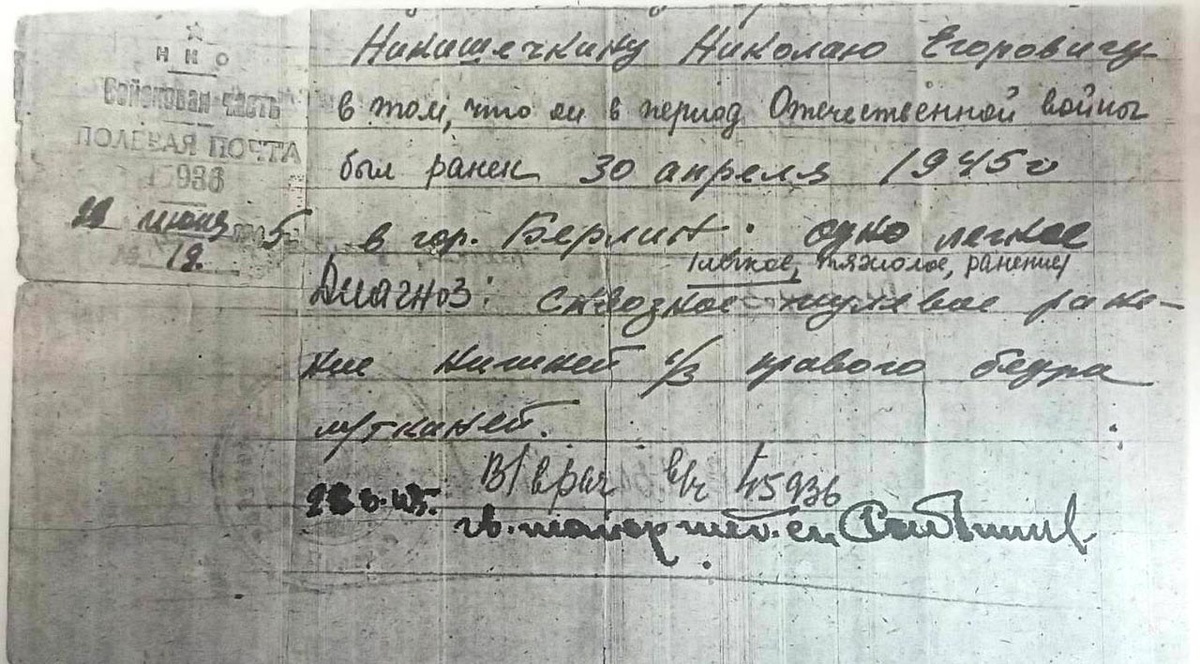 ННО
Войсковая часть
ПОЛЕВАЯ ПОЧТА
15936
22 июня 5
Никишечкину Николаю Егоровичу
в том, что он в период Отечественной войны
был ранен 30 апреля 1945г
в гор. Берлин. одно легкое
/легкое, тяжолое, ранение/
Диагноз: сквозное пулевое ране-
ние нижней с/3 правого бедра
м/тканей.
Вr врач в/ч 15936
22.6.45. гв. майор мед. сл.